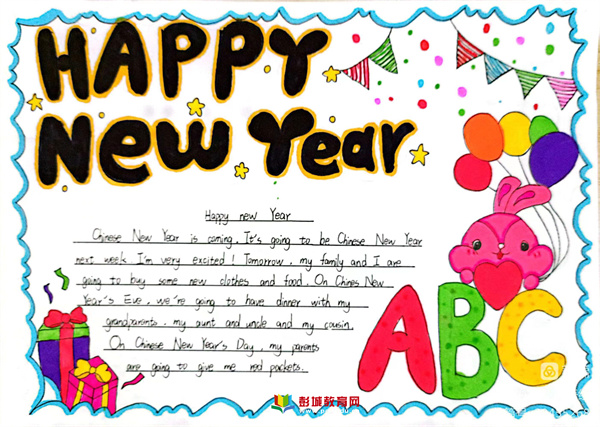 HAPPY
New Year
Happy new Year
Chinese New Year is coming. It's going to be Chinese New Year
next week. I'm very excited! Tomorrow, my family and I are
going to buy some new clothes and food. On Chines New
Year's Eve, we're going to have dinner with my
grandparents, my aunt and uncle and my cousin.
On Chinese New Year's Day, my parents
are going to give me red pockets.
ABC
彭城教育网